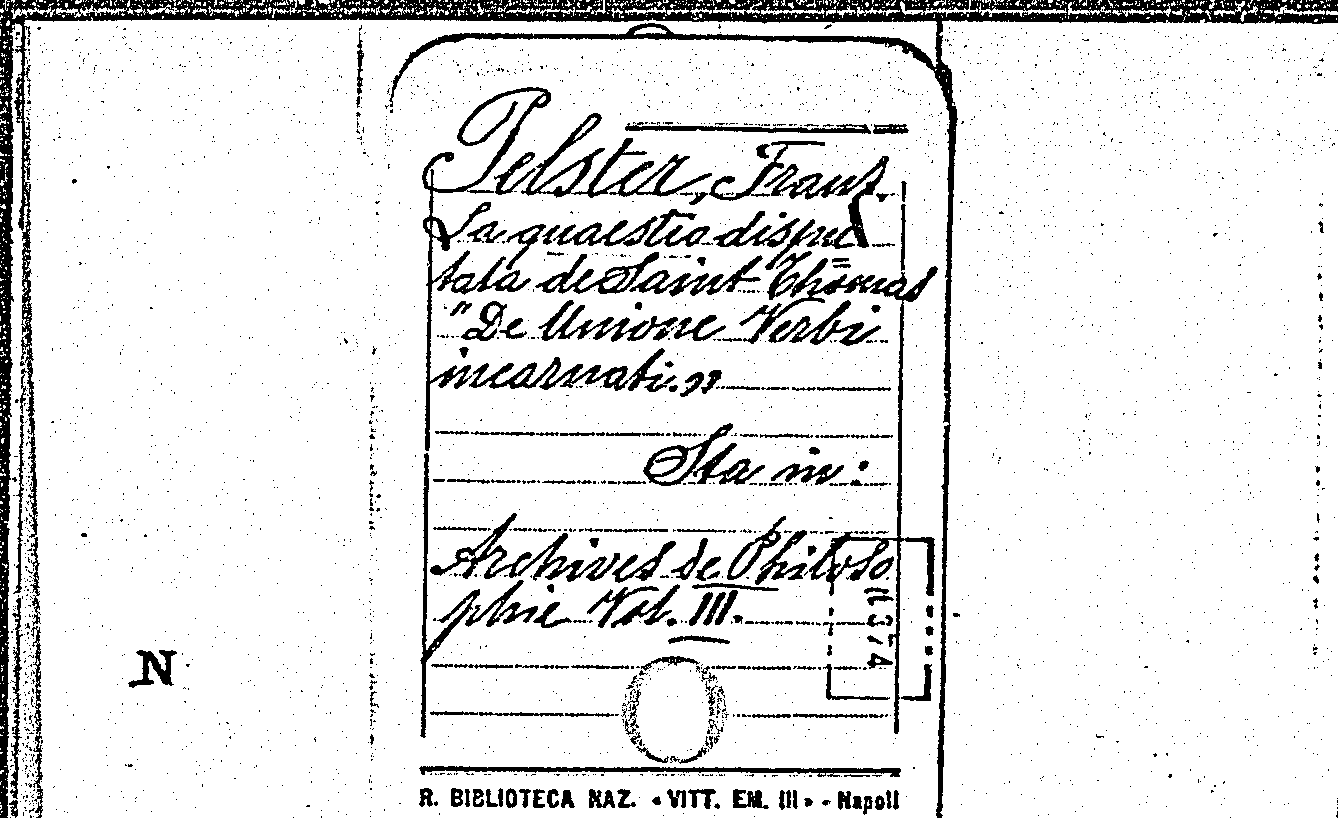 Pelster, Franz.
La quaestio dispu
tata de Saint Thomas
"De Unione Verbi
incarnati."
Sta in:
Archives de Philoso
phie Vol. III.
N
R. BIBLIOTECA NAZ. «VITT. EM. III» - Napoli